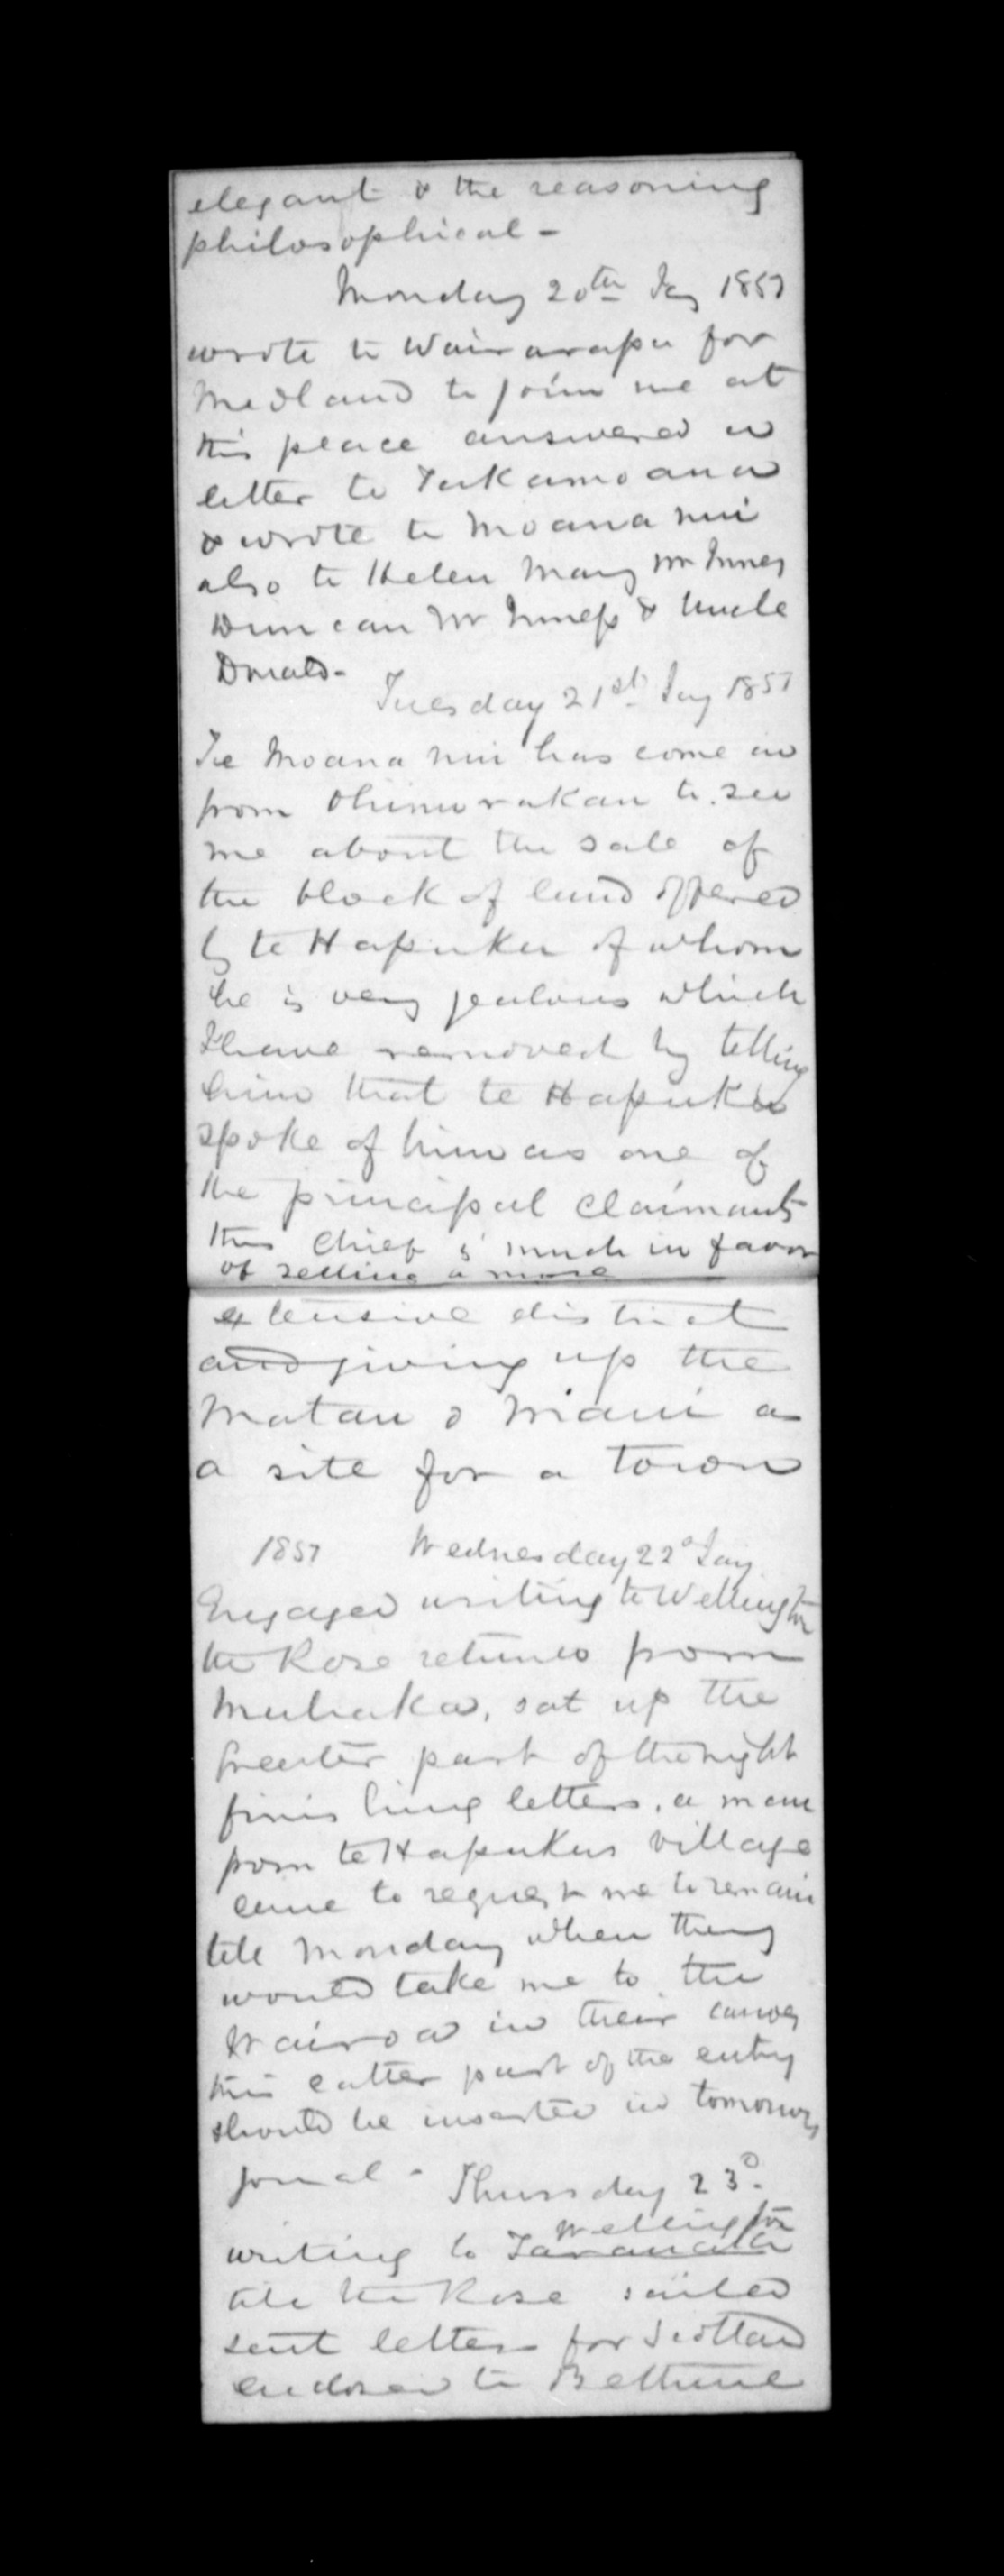 elegant & the reasoning
philosophical -
Monday 20th Jany 1851
wrote to Wairarapa for
Medland to join me at
this place answered a
letter to Tukamoana
& wrote to Moananui
also to Helen Mary Mr Innes
Duncan Mr Inness & Uncle
Donald -
Tuesday 21st Jany 1851
Te Moana nui has come in
from to see
me about the sale of
the block of land offered
by te Hapuku of whom
he is very jealous which
I have removed by telling
him that te Hapuku
spoke of him as one of
the principal claimants
this chief is much in favor
of selling a more
extensive district
and giving up the
Matau o Maui as
a site for a town
1851 Wednesday 22d Jany
Engaged writing to Wellington
the Rose returned from
Muhaka, sat up the
greater part of the night
finishing letters, a man
from te Hapukus village
came to request me to remain
till Monday when they
would take me to the
Wairoa in their canoes
this latter part of the entry
should be inserted in tomorrows
jornal - Thursday 23d.
Wellington
writing to Taranaki
till the Rose sailed
sent letters for Scotland
enclosed to Bethune